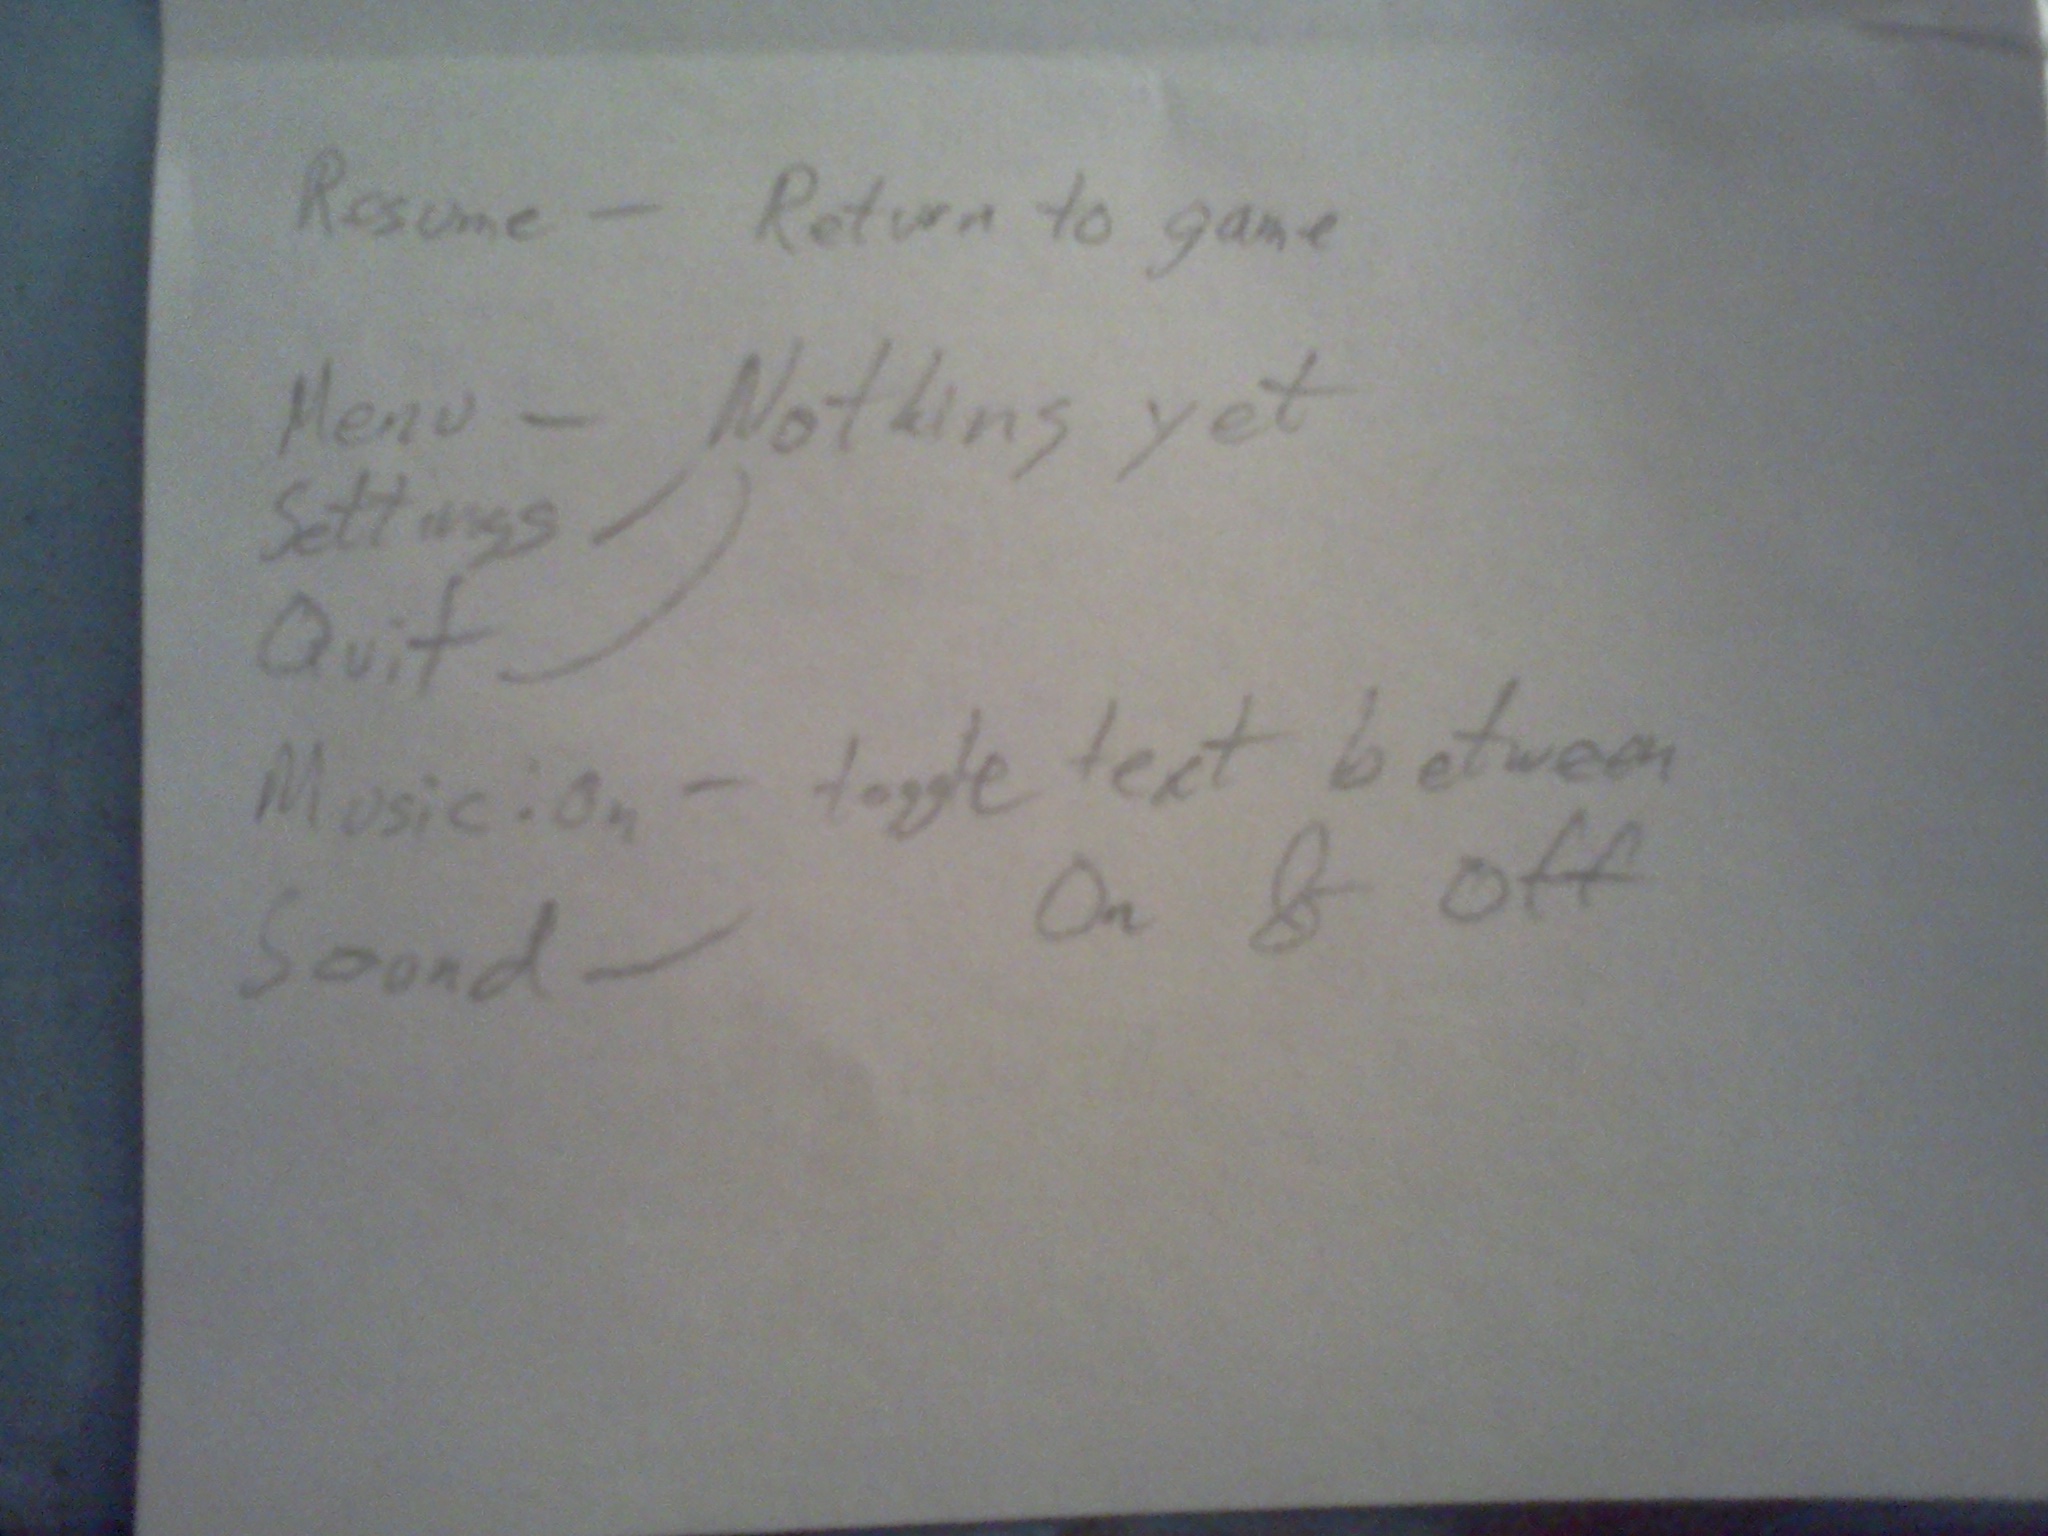 Resume - Return to game
Menu - Nothing yet
Settings
Quit
Music: On - toggle text between
On & Off
Sound -